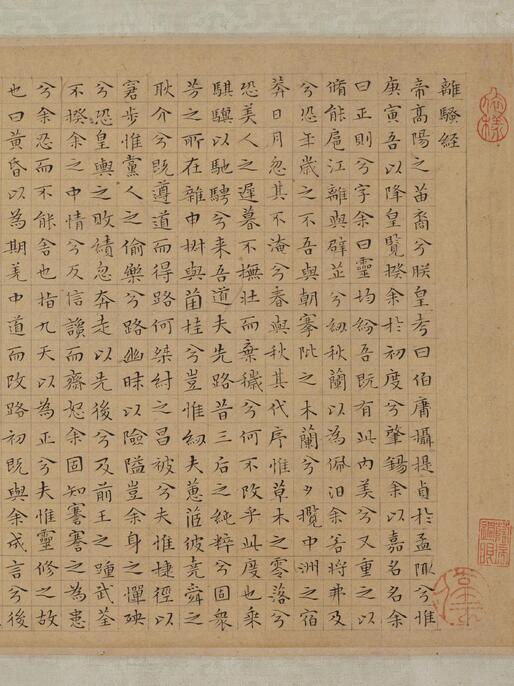 離騷經
帝高陽之苗裔兮朕皇考曰伯庸攝提貞於孟陬兮惟
庚寅吾以降皇覽揆余於初度兮肇錫余以嘉名名余
曰正則兮字余曰靈均紛吾既有此內美兮又重之以
脩能扈江離與辟芷兮紉秋蘭以為佩汩余若將弗及
兮恐年歲之不吾與朝搴阰之木蘭兮夕攬中洲之宿
莽日月忽其不淹兮春與秋其代序惟草木之零落兮
恐美人之遲暮不撫壯而棄穢兮何不改乎此度也乘
騏驥以馳騁兮来吾道夫先路昔三后之純粹兮固衆
芳之所在雜申椒與菌桂兮豈惟紉夫蕙茝彼堯舜之
耿介兮既遵道而得路何桀紂之昌被兮夫惟捷徑以
窘步惟黨人之偷樂兮路幽昧以險隘豈余身之憚殃
兮恐皇輿之敗績忽奔走以先後兮及前王之踵武荃
不揆余之中情兮反信讒而齌怒余固知謇謇之為患
兮余忍而不能舍也指九天以為正兮夫惟靈修之故
也曰黃昏以為期羌中道而改路初既與余成言兮後